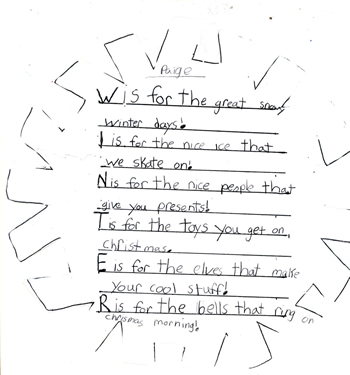 Paige
W is for the great snowy
winter days!
I is for the nice ice that
we skate on!
N is for the nice people that
give you presents!
T is for the toys you get on
christmas.
E is for the elves that make
your cool stuff!
R is for the bells that ring on
chrismas morning!